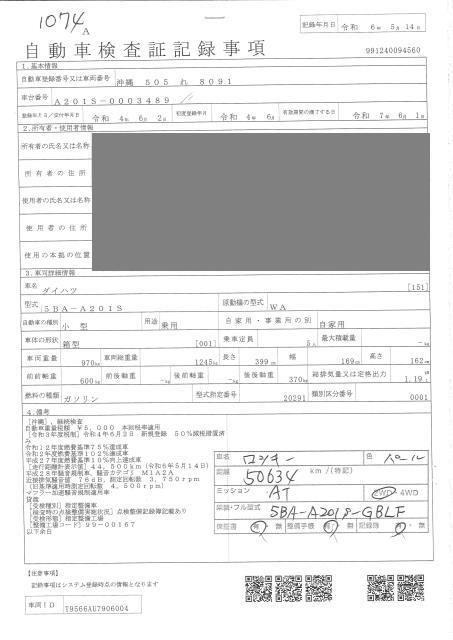 1074A
記録年月日 令和 6年 5月14日
自動車検査証記録事項
991240094560
1.基本情報
自動車登録番号又は車両番号 沖縄 505 れ 8091
車台番号 A201S-0003489
登録年月日/交付年月日 令和 4年 6月 2日 初度登録年月 令和 4年 6月 有効期間の満了する日 令和 7年 6月 1日
2.所有者・使用者情報
所有者の氏名又は名称
所有者の住所
使用者の氏名又は名称
使用者の住所
使用の本拠の位置
3.車両詳細情報
車名 ダイハツ [151]
型式 5BA-A201S 原動機の型式 WA
自動車の種別 小型 用途 乗用 自家用・事業用の別 自家用
車体の形状 箱型 [001] 乗車定員 5人 最大積載量 -kg
車両重量 970kg 車両総重量 1245kg 長さ 399cm 幅 169cm 高さ 162cm
前前軸重 600kg 前後軸重 -kg 後前軸重 -kg 後後軸重 370kg 総排気量又は定格出力 1.19L
燃料の種類 ガソリン 型式指定番号 20291 類別区分番号 0001
4.備考
[沖縄],継続検査
自動車重量税額 ¥5,000 本則税率適用
[令和3年度税制]令和4年6月2日 新規登録 50%減税措置済
み
令和12年度燃費基準75%達成車
令和2年度燃費基準102%達成車
平成27年度燃費基準10%向上達成車
[走行距離計表示値]44,500km(令和6年5月14日)
平成28年騒音規制車、騒音カテゴリ M1A2A
近接排気騒音値 76dB、測定回転数 3,750rpm
(旧基準適用時測定回転数 4,500rpm)
マフラー加速騒音規制適用車
貸渡
[受検種別]指定整備車
[検査時の点検整備実施状況]点検整備記録簿記載あり
[受検形態]指定整備工場
[整備工場コード]99-00167
以下余白
車名 ロッキー 色 パール
距離 50634 km/(特記)
ミッション AT 2WD・4WD
車種・フル型式 5BA-A201S-GBLF
保証書 有・無 整備手帳 有・無 記録簿 有・無
【注意事項】
記録事項はシステム登録時点の情報となります
車両ID T9566AU7906004